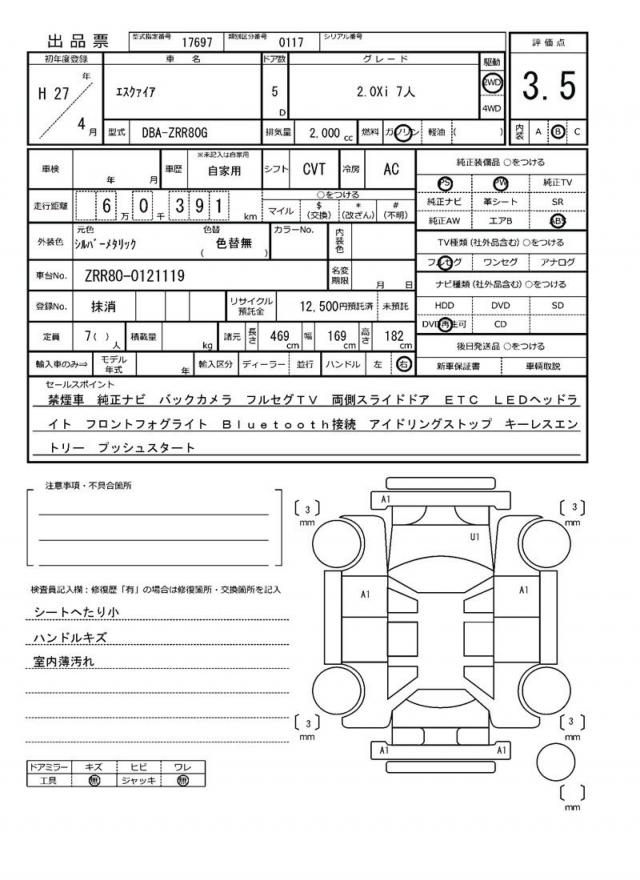 出品票 型式指定番号 17697 類別区分番号 0117 シリアル番号
評価点
3.5
内装 A B C
初年度登録 車名 ドア数 グレード 駆動
H 27 年 4 月
エスクァイア 5 D 2.0Xi 7人 2WD 4WD
型式 DBA-ZRR80G 排気量 2,000 cc 燃料 ガソリン 軽油 ( )
車検 年 月 車歴 ※未記入は自家用 自家用 シフト CVT 冷房 AC
走行距離 6 万 0 千 3 9 1 km
○をつける
マイル $ (交換) * (改ざん) # (不明)
外装色 元色 シルバーメタリック 色替 ( 色替無 ) カラーNo. 内装色
車台No. ZRR80-0121119 名変期限 月 日
登録No. 抹消 リサイクル預託金 12,500円預託済 未預託
定員 7( ) 人 積載量 kg 諸元 長さ 469 cm 幅 169 cm 高さ 182 cm
輸入車のみ⇒ モデル年式 年 輸入区分 ディーラー 並行 ハンドル 左 右
純正装備品 ○をつける
PS PW 純正TV
純正ナビ 革シート SR
純正AW エアB ABS
TV種類(社外品含む) ○をつける
フルセグ ワンセグ アナログ
ナビ種類(社外品含む) ○をつける
HDD DVD SD
DVD再生可 CD
後日発送品 ○をつける
新車保証書 車輌取説
セールスポイント
禁煙車 純正ナビ バックカメラ フルセグTV 両側スライドドア ETC LEDヘッドラ
イト フロントフォグライト Bluetooth接続 アイドリングストップ キーレスエン
トリー プッシュスタート
注意事項・不具合箇所
検査員記入欄:修復歴「有」の場合は修復箇所・交換箇所を記入
シートへたり小
ハンドルキズ
室内薄汚れ
ドアミラー キズ ヒビ ワレ
工具 無 ジャッキ 無
A1
[ 3 ] mm
[ 3 ] mm
U1
A1
A1
[ 3 ] mm
[ 3 ] mm
A1
A1
[ ] mm